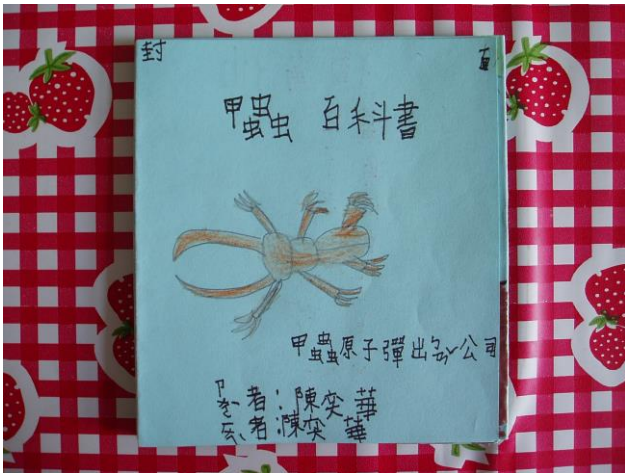 封 面
甲蟲 百科書
甲蟲原子彈出ㄅㄢˇ公司
者:陳奕華
者:陳奕華